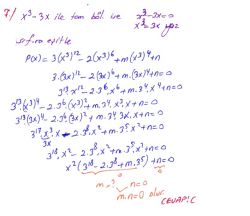 7/ x³-3x ile tam böl. ise x³-3x=0
x³=3x yaz
sıfıra eşitle
P(x)=3(x³)¹²-2(x³)⁶+m(x³)⁴+n
3.(3x)¹²-2(3x)⁶+m.(3x)⁴+n=0
3¹³x¹²-2.3⁶.x⁶+m.3⁴x⁴+n=0
3¹³(x³)⁴-2.3⁶(x³)²+m.3⁴.x³.x+n=0
3¹³(3x)⁴-2.3⁶(3x)²+m.3⁴.3x.x+n=0
3¹⁷x³x-2.3⁸.x²+m.3⁵x²+n=0
3x
3¹⁸.x²-2.3⁸.x²+m.3⁵x²+n=0
x²(3¹⁸-2.3⁸+m.3⁵)+n=0
m.? n=0
0
m.n=0 olur.
CEVAP:C